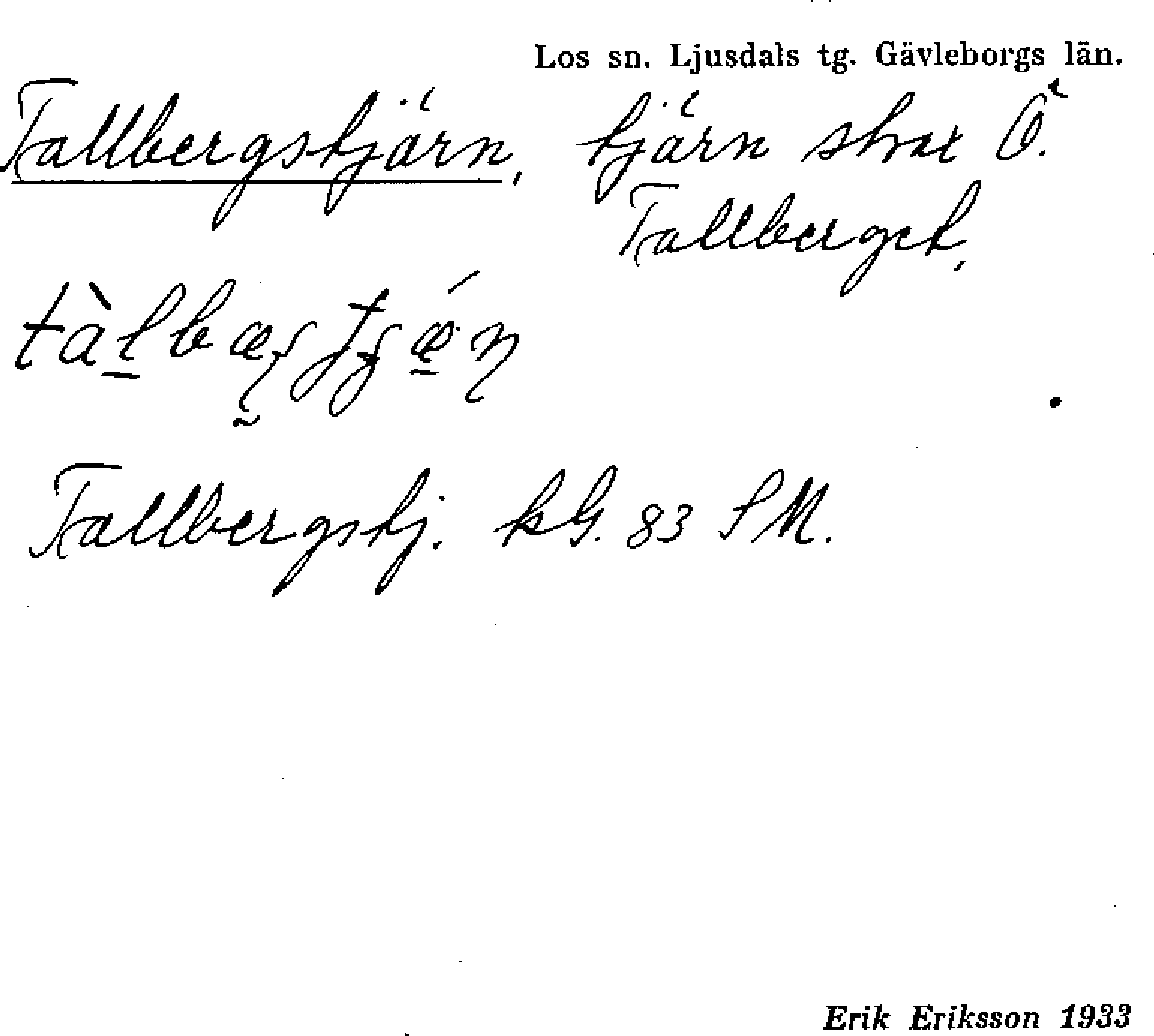 Los sn. Ljusdals tg. Gävleborgs län.
Tallbergstjärn, tjärn strax Ö.
Tallberget.
Tallbergstj. kG. 83 SM.
Erik Eriksson 1933